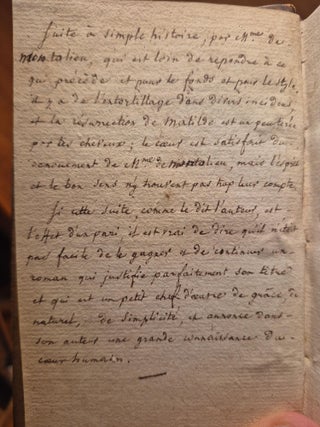 Suite à simple histoire, par Mme de
Montolieu, qui est loin de repondre à ce
qui précède et pour le fonds et pour le style,
il y a de l'entortillage dans divers incidens
et la resurrection de Matilde est un peu tirée
par les cheveux; le cœur est satisfait du
denouement de Mme de Montolieu, mais l'esprit
et le bon sens n'y trouvent pas trop leur compte.
Si cette suite, comme le dit l'auteur, est
l'effet d'un pari il est vrai de dire qu'il n'étoit
pas facile de le gagner et de continuer un
roman qui justifie parfaitement son titre
et qui est un petit chef d'œuvre de grâce, de
naturel, de simplicité, et annonce dans
son auteur une grande connaissance du
cœur humain.